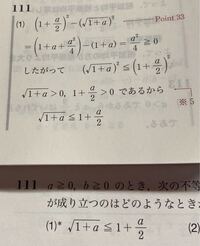 111
(1) (1+a/2)² − (√(1+a))²
Point 33
= (1+a+a²/4) − (1+a) = a²/4 ≧ 0
したがって (√(1+a))² ≦ (1+a/2)²
√(1+a) > 0, 1+a/2 > 0 であるから
※5
√(1+a) ≦ 1+a/2
111 a≧0, b≧0 のとき, 次の不等
が成り立つのはどのようなときか
(1)* √(1+a) ≦ 1+a/2
(2)